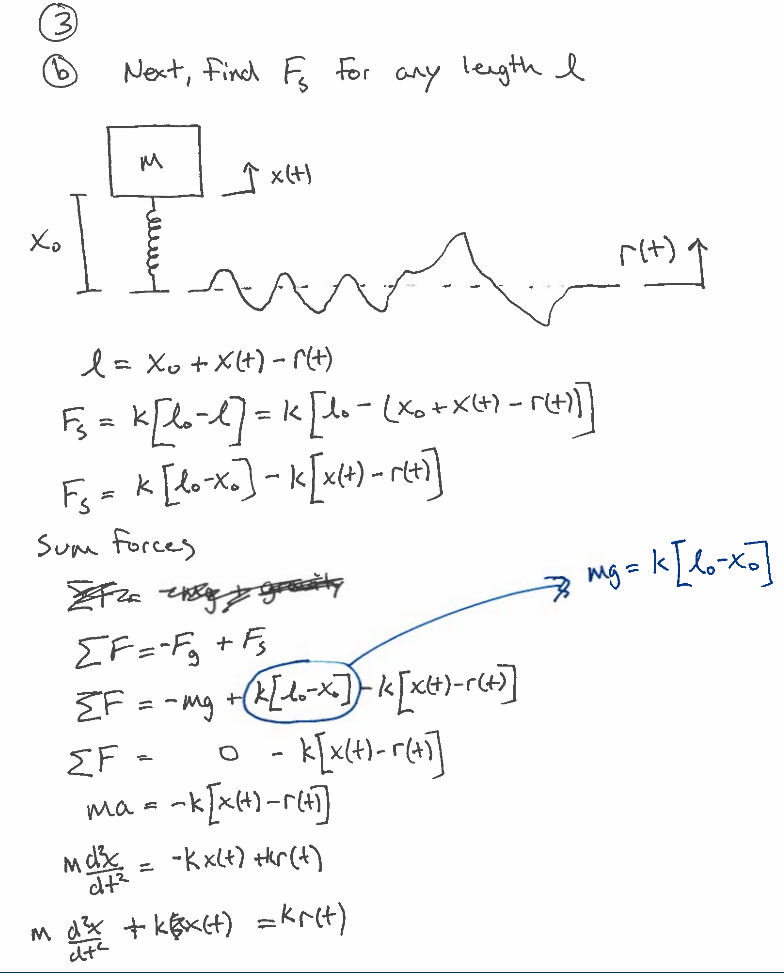 ③
ⓑ Next, find Fₛ for any length l
M
x(t)
x₀
r(t)
l = x₀ + x(t) - r(t)
Fₛ = k[l₀-l] = k[l₀ - (x₀ + x(t) - r(t))]
Fₛ = k[l₀-x₀] - k[x(t) - r(t)]
Sum forces
mg = k[l₀-x₀]
ΣF = -F_g + Fₛ
ΣF = -mg + k[l₀-x₀] - k[x(t)-r(t)]
ΣF = 0 - k[x(t)-r(t)]
ma = -k[x(t)-r(t)]
m d²x/dt² = -kx(t) + kr(t)
m d²x/dt² + kx(t) = kr(t)